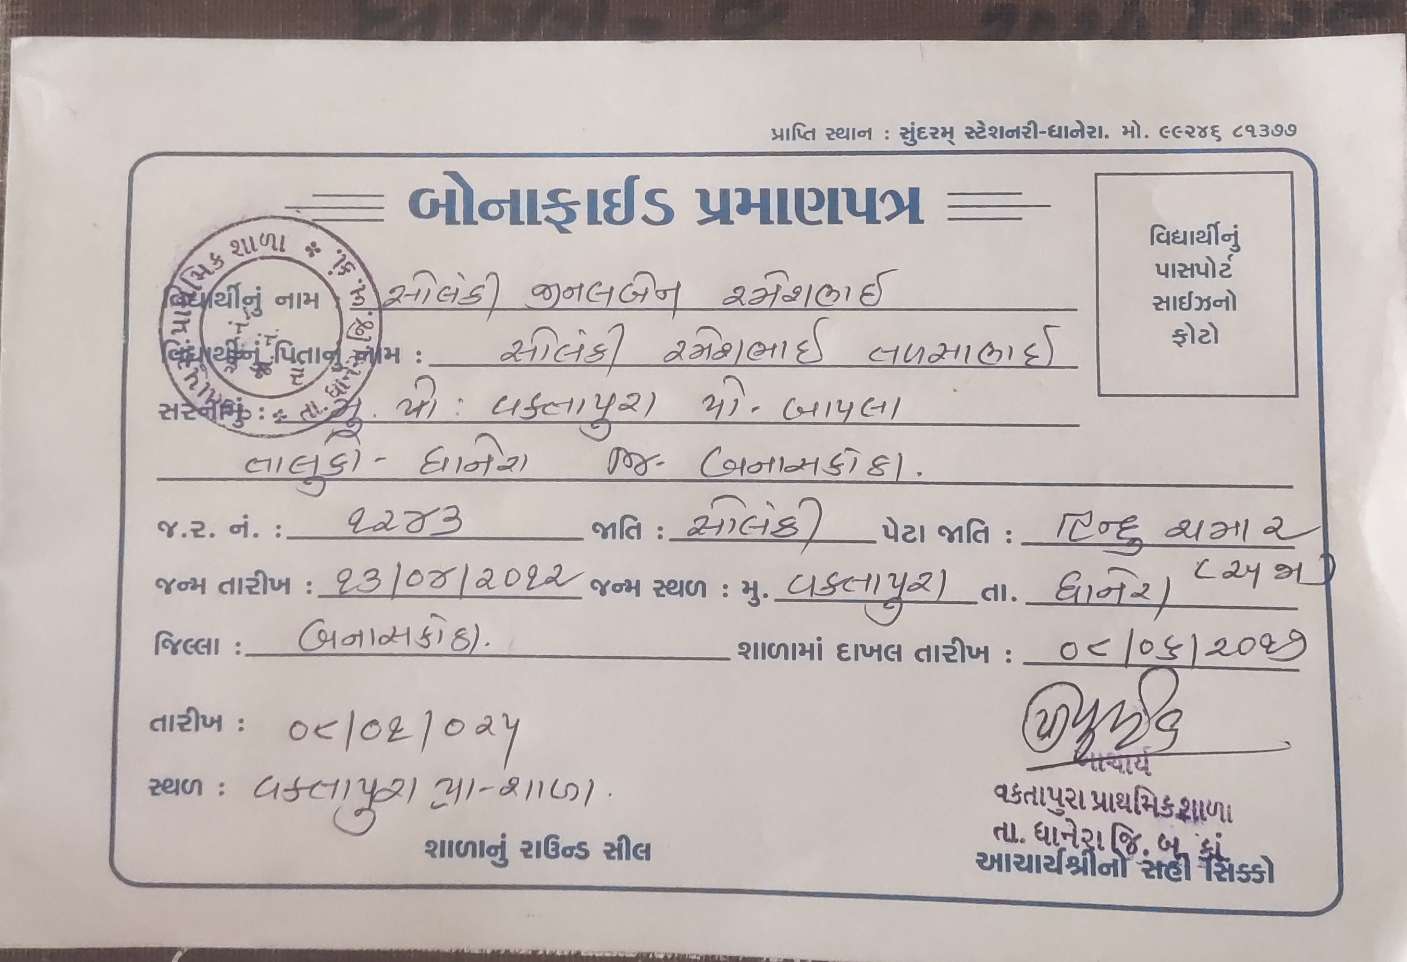 પ્રાપ્તિ સ્થાન : સુંદરમ્ સ્ટેશનરી-ધાનેરા. મો. ૯૯૨૪૬ ૮૧૩૭૭
બોનાફાઈડ પ્રમાણપત્ર
વિદ્યાર્થીનું
પાસપોર્ટ
સાઈઝનો
ફોટો
વિદ્યાર્થીનું નામ : સોલંકી જીનલબેન રમેશભાઈ
વિદ્યાર્થીનું પિતાનું નામ : સોલંકી રમેશભાઈ
સરનામું : મુ. પો : વકતાપુરા પો- બાપલા
તાલુકો - ધાનેરા જિ- બનાસકાંઠા.
જ.ર. નં. : ૧૨૪૩ જાતિ : સોલંકી પેટા જાતિ : હિન્દુ ચમાર
જન્મ તારીખ : ૧૩/૦૪/૨૦૧૨ જન્મ સ્થળ : મુ. વકતાપુરા તા. ધાનેરા
જિલ્લા : બનાસકાંઠા. શાળામાં દાખલ તારીખ : ૦૮/૦૬/૨૦૧૭
તારીખ : ૦૮/૦૧/૦૨૫
સ્થળ : વકતાપુરા પ્રા-શાળા.
આચાર્ય
વકતાપુરા પ્રાથમિક શાળા
તા. ધાનેરા જિ. બ. કાં
શાળાનું રાઉન્ડ સીલ
આચાર્યશ્રીનો સહી સિક્કો